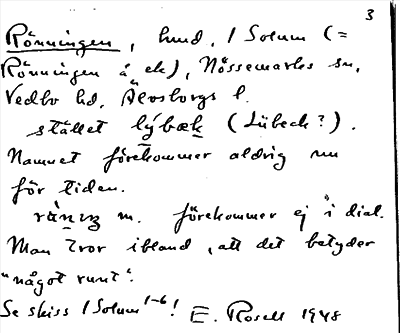 3
Rönningen, hmd, / Solum (=
Rönningen å ek), Nössemarks sn,
Vedbo hd, Älvsborgs l.
stället lýbæk (Lübeck?).
Namnet förekommer aldrig nu
för tiden.
m. förekommer ej i dial.
Man tror ibland, att det betyder
"något runt".
Se skiss / Solum 1-6! E. Rosell 1948